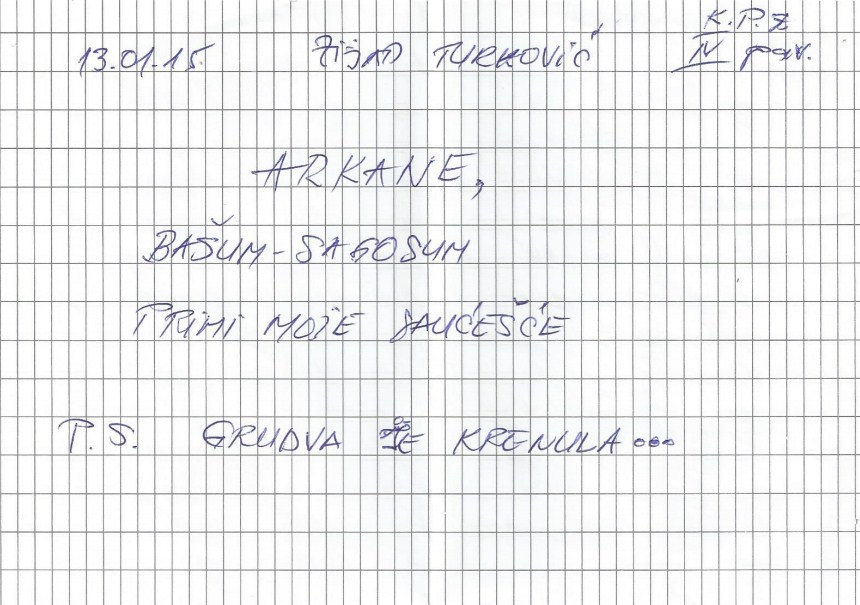 13.01.15. ZIJAD TURKOVIĆ K.P.Z
IV pav.
ARKANE,
BAŠUM-SAGOSUM
PRIMI MOJE SAUĆEŠĆE
P.S. GRUDVA JE KRENULA...